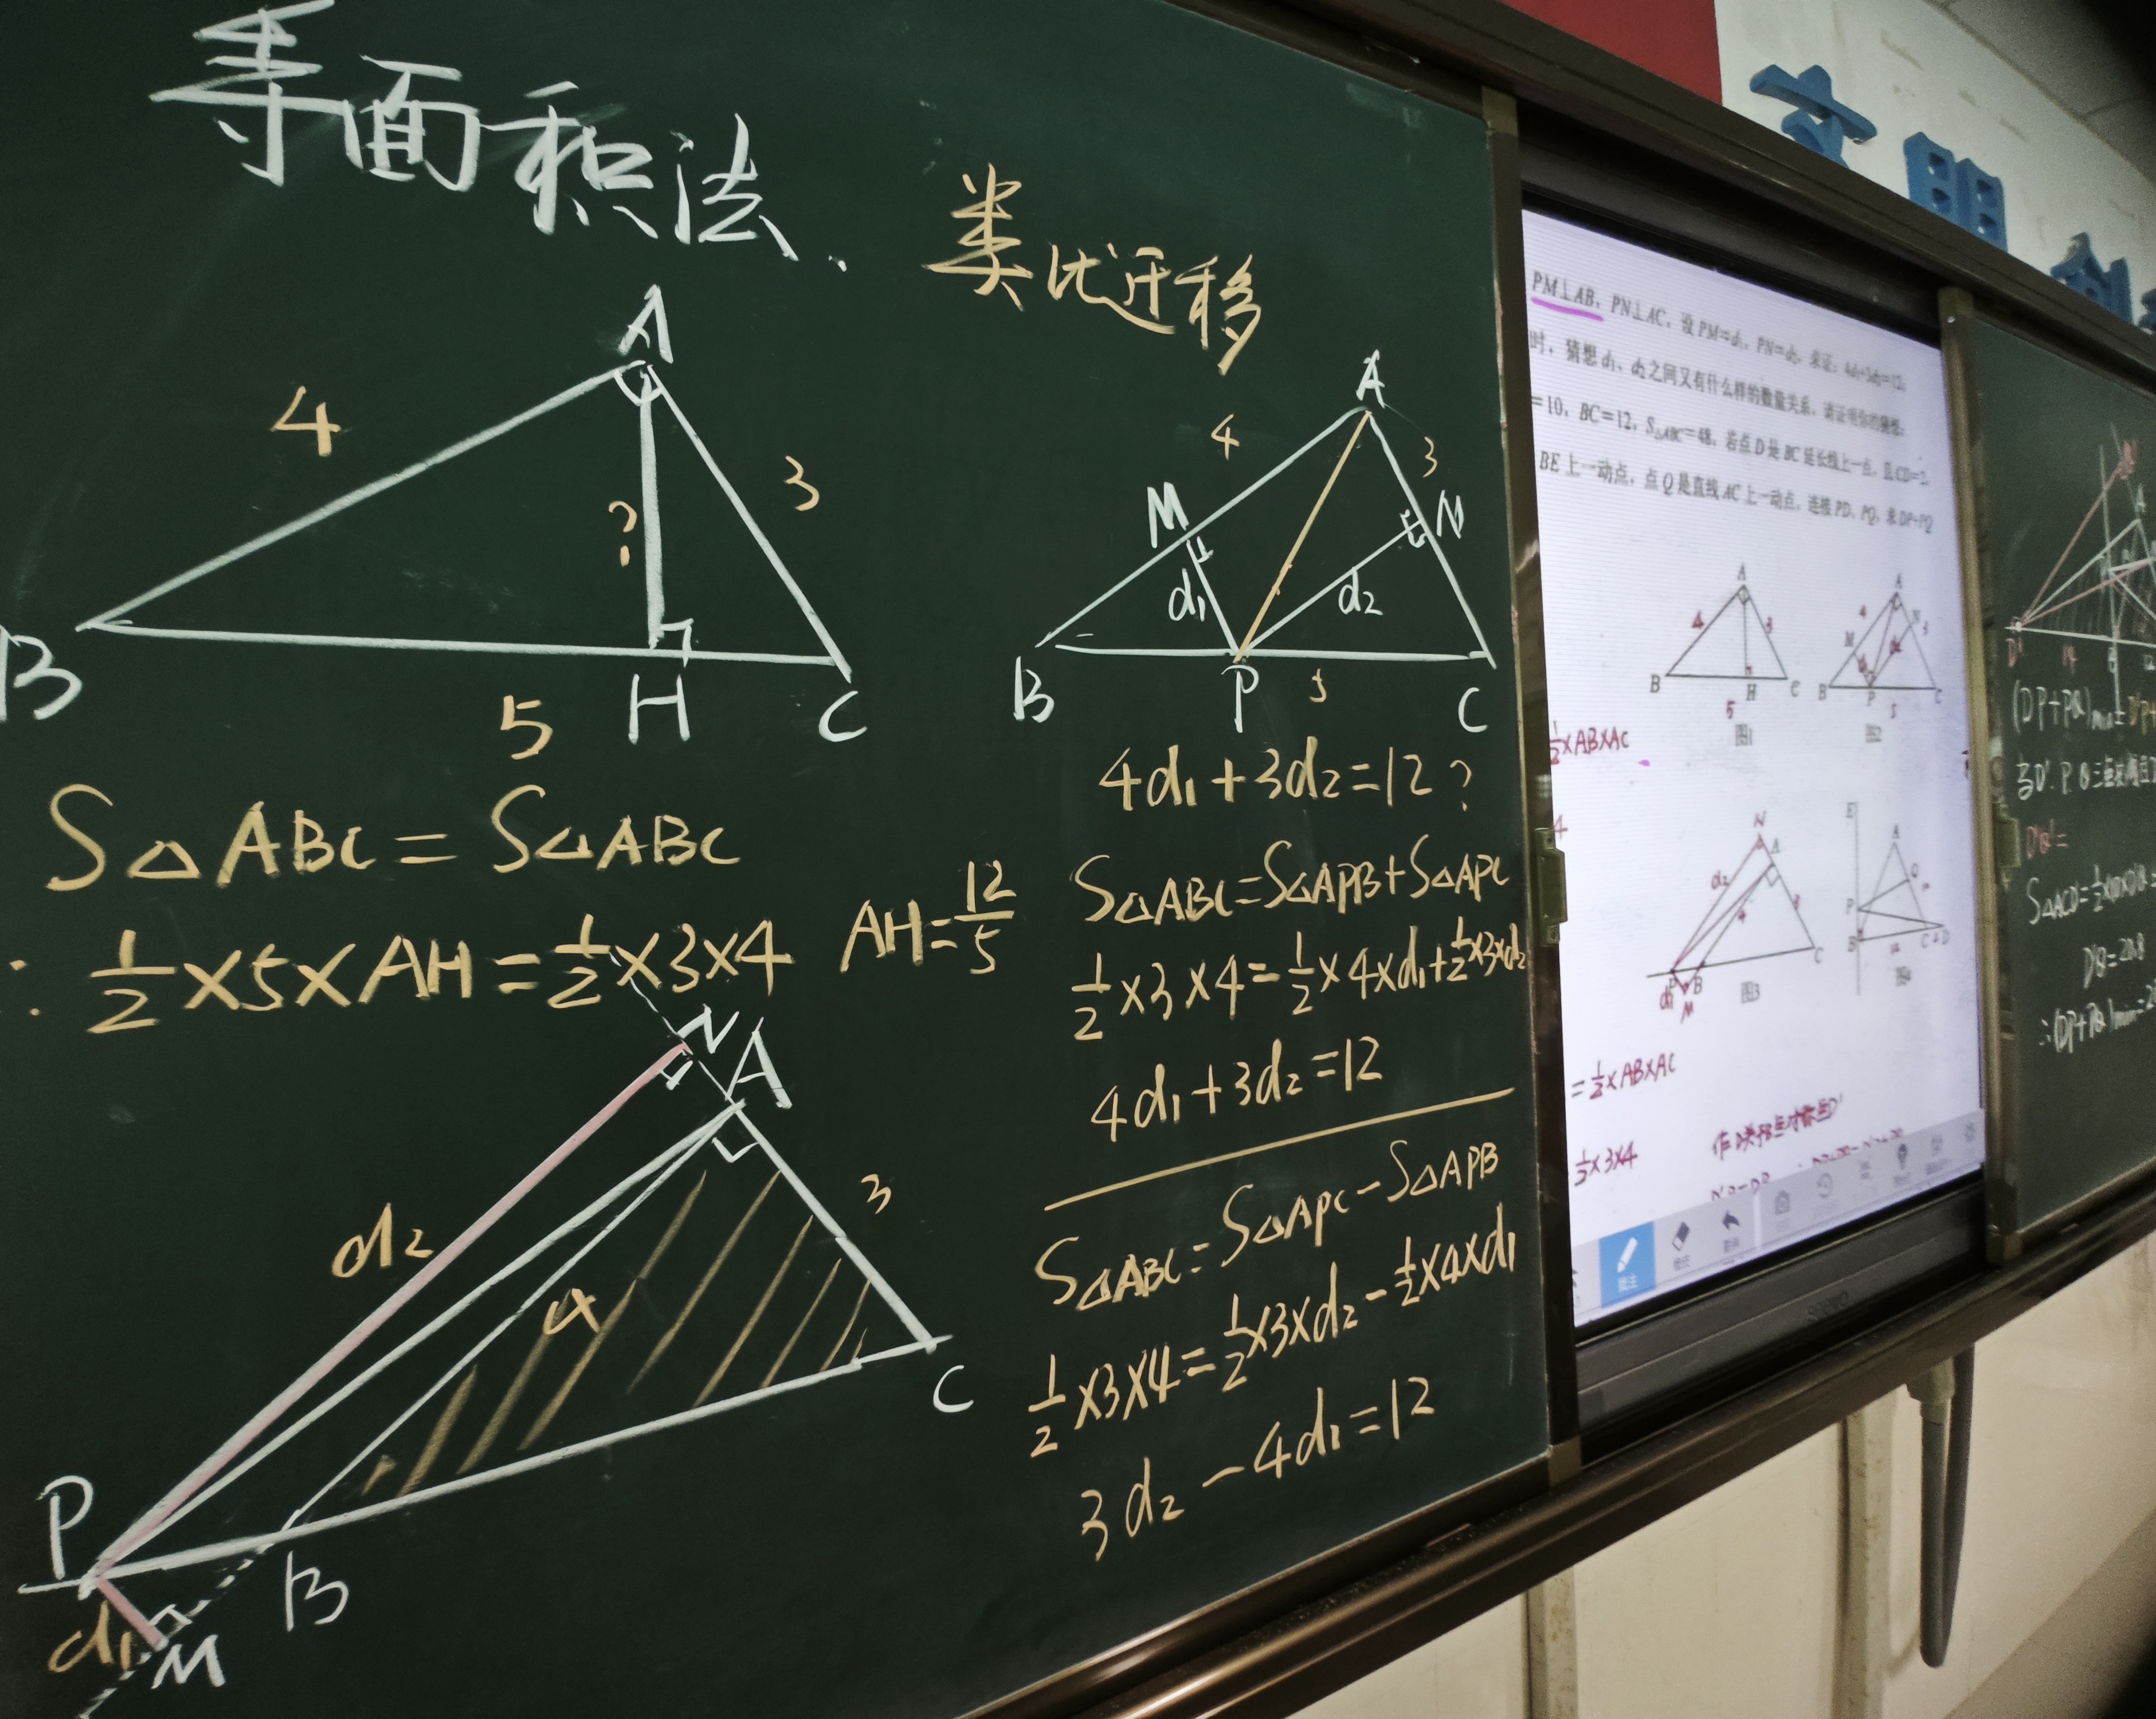 等面积法.
类比迁移
A
4
3
?
B
H
C
5
S△ABC=S△ABC
∴ 1/2×5×AH=1/2×3×4
AH=12/5
A
4
3
M
N
d₁
d₂
B
P
5
C
4d₁+3d₂=12?
S△ABC=S△APB+S△APC
1/2×3×4=1/2×4×d₁+1/2×3×d₂
4d₁+3d₂=12
N
A
3
d₂
4
C
P
B
d₁
M
S△ABC=S△APC-S△APB
1/2×3×4=1/2×3×d₂-1/2×4×d₁
3d₂-4d₁=12
文明
PM⊥AB, PN⊥AC, 设PM=d₁, PN=d₂, 求证: 4d₁+3d₂=12;
时, 猜想d₁, d₂之间又有什么样的数量关系, 请证明你的猜想;
=10, BC=12, S△ABC=48, 若点D是BC延长线上一点, 且CD=2,
BE上一动点, 点Q是直线AC上一动点, 连接PD, PQ, 求DP+PQ
A
4
3
B
H
C
5
图1
A
4
N
3
M
B
P
C
5
图2
1/2×AB×AC
N
A
d₂
4
3
C
P
B
d₁
M
图3
E
A
Q
P
B
C
2
D
12
图4
=1/2×AB×AC
1/2×3×4
批注
D'
14
D'Q=
S△ACD'=1/2×10×D'Q
D'Q=20.8